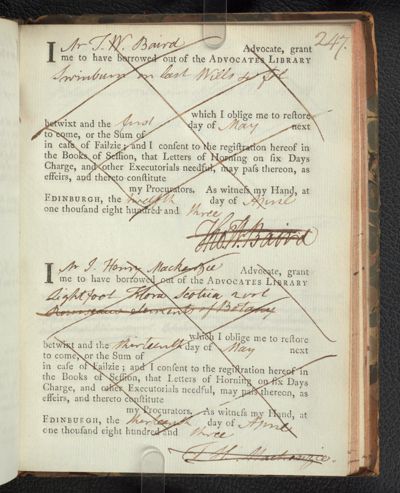 247.
I Mr T. W. Baird Advocate, grant
me to have borrowed out of the ADVOCATES LIBRARY
Swinburn on last Wills 4 ft
betwixt and the first which I oblige me to restore
day of May next
to come, or the Sum of
in case of Failzie; and I consent to the registration hereof in
the Books of Session, that Letters of Horning on six Days
Charge, and other Executorials needful, may pass thereon, as
effeirs, and thereto constitute
my Procurators. As witness my Hand, at
EDINBURGH, the twelfth day of April
one thousand eight hundred and three
Tho. W. Baird
I Mr J. Henry Mackenzie Advocate, grant
me to have borrowed out of the ADVOCATES LIBRARY
Lightfoot Flora Scotica 2 vol
Rousseaus elements of Botany
which I oblige me to restore
betwixt and the thirteenth day of May next
to come, or the Sum of
in case of Failzie; and I consent to the registration hereof in
the Books of Session, that Letters of Horning on six Days
Charge, and other Executorials needful, may pass thereon, as
effeirs, and thereto constitute
my Procurators. As witness my Hand, at
EDINBURGH, the thirteenth day of April
one thousand eight hundred and three
J. H. Mackenzie.